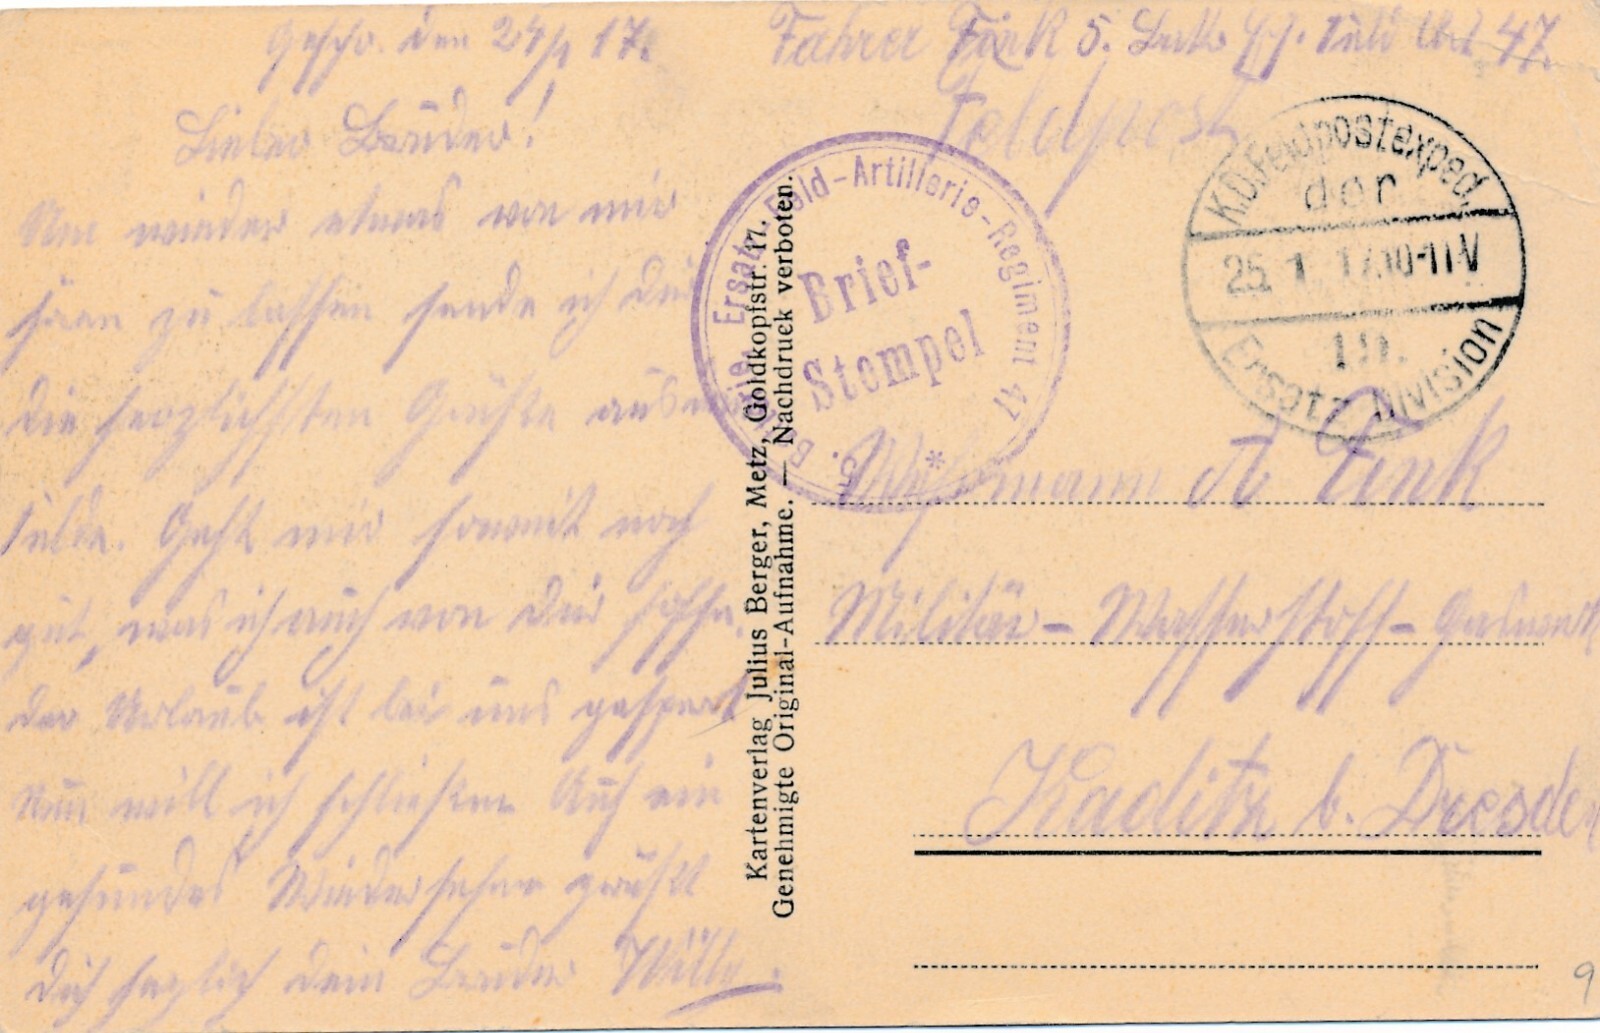 Geschr. den 24/1 17.
Lieber Bruder!
Um wieder etwas von mir
hören zu lassen sende ich dir
die herzlichsten Grüße aus
Felde. Geht mir soweit noch
gut, was ich auch von dir hoffe.
der Urlaub ist bei uns gesperrt
Nun will ich schließen Auf ein
gesundes Wiedersehen grüßt
dich herzlich dein Bruder Willy.
Fahrer Fink 5. 47.
Feldpost
5. Batterie, Ersatz Feld-Artillerie-Regiment 47
Brief-
Stempel
K.D. Feldpostexped.
der
25. 1. 17. 10-11 V
19.
Ersatz Division
Kartenverlag Julius Berger, Metz, Goldkopfstr. 17.
Genehmigte Original-Aufnahme. — Nachdruck verboten.
Wehrmann A Fink
Militär-Wasserstoff-Gaswerk
Kaditz b. Dresden
9